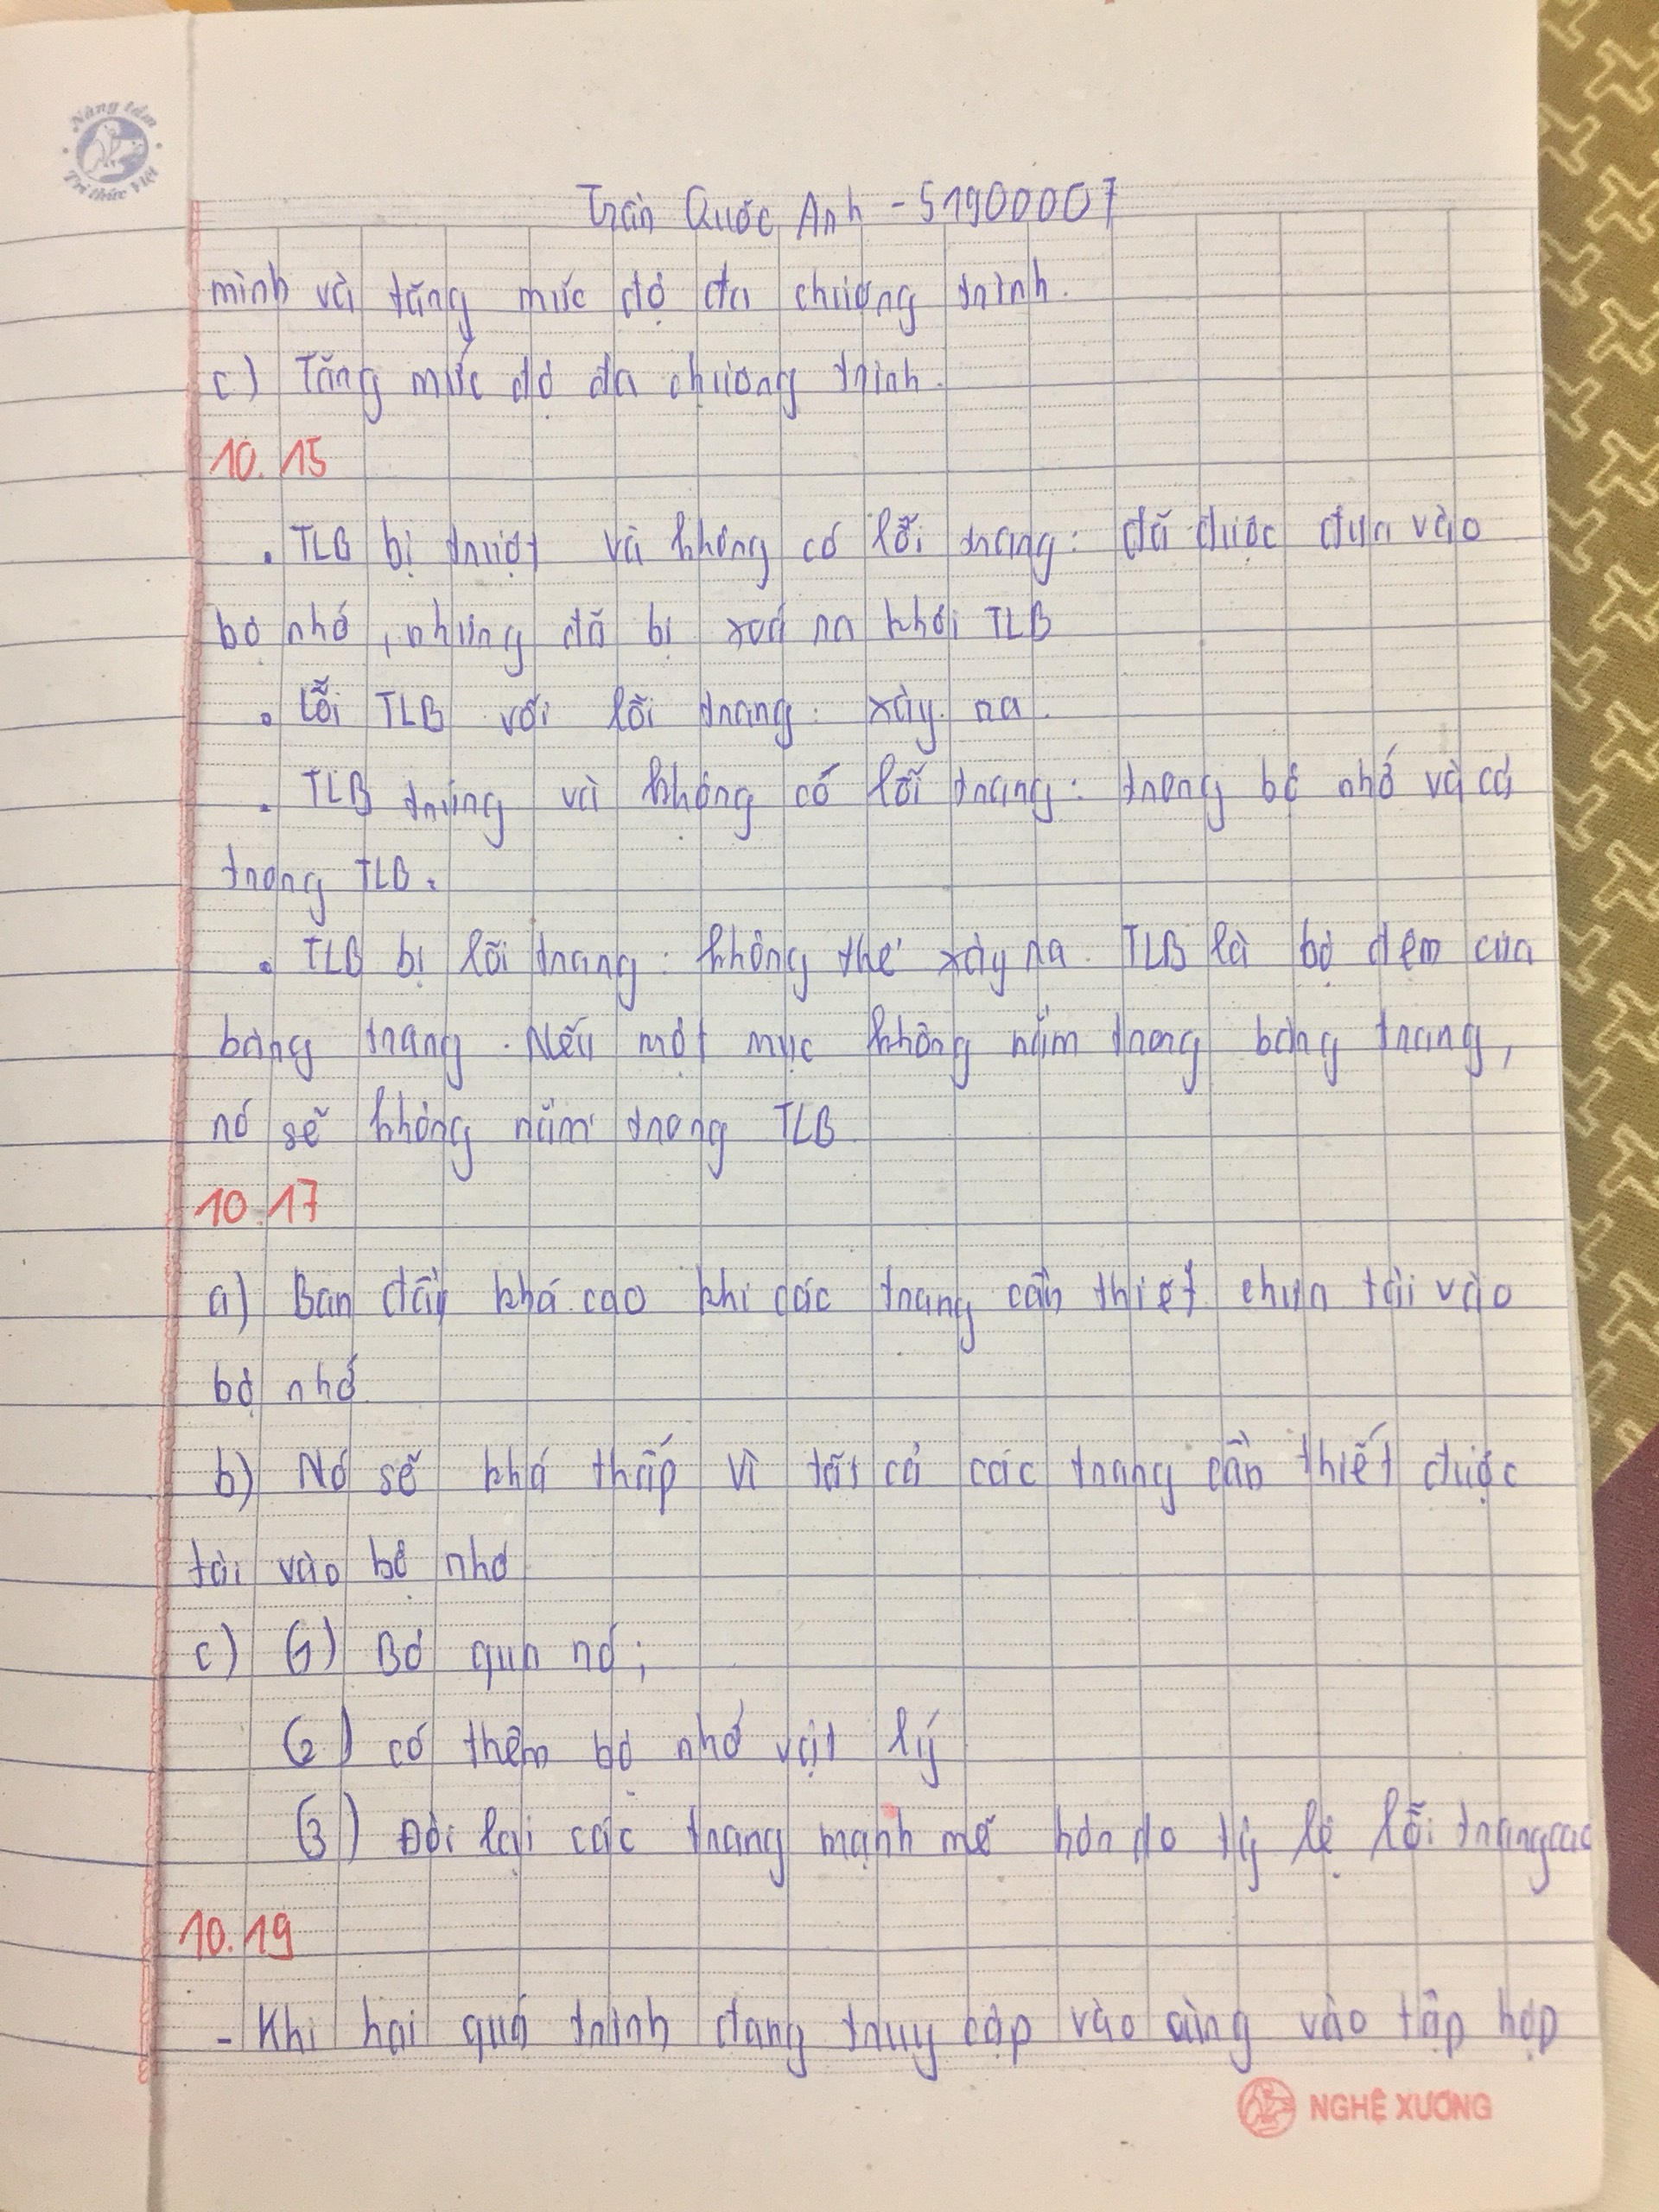 Nâng tầm
Tri thức Việt
Trần Quốc Anh - 51900007
mình và tăng mức độ đa chương trình.
c) Tăng mức độ đa chương trình.
10.15
. TLB bị trượt và không có lỗi trang: đã được đưa vào
bộ nhớ, nhưng đã bị xoá ra khỏi TLB
. Lỗi TLB với lỗi trang: xảy ra.
. TLB trúng và không có lỗi trang: trong bộ nhớ và cả
trong TLB.
. TLB bị lỗi trang: không thể xảy ra. TLB là bộ đệm của
bảng trang. Nếu một mục không nằm trong bảng trang,
nó sẽ không nằm trong TLB
10.17
a) Ban đầu khá cao khi các trang cần thiết chưa tải vào
bộ nhớ
b) Nó sẽ khá thấp vì tất cả các trang cần thiết được
tải vào bộ nhớ
c) (1) Bỏ qua nó;
(2) có thêm bộ nhớ vật lý
(3) Đòi lại các trang mạnh mẽ hơn do tỷ lệ lỗi trang cao
10.19
- Khi hai quá trình đang truy cập vào cùng vào tập hợp
NGHỆ XƯƠNG